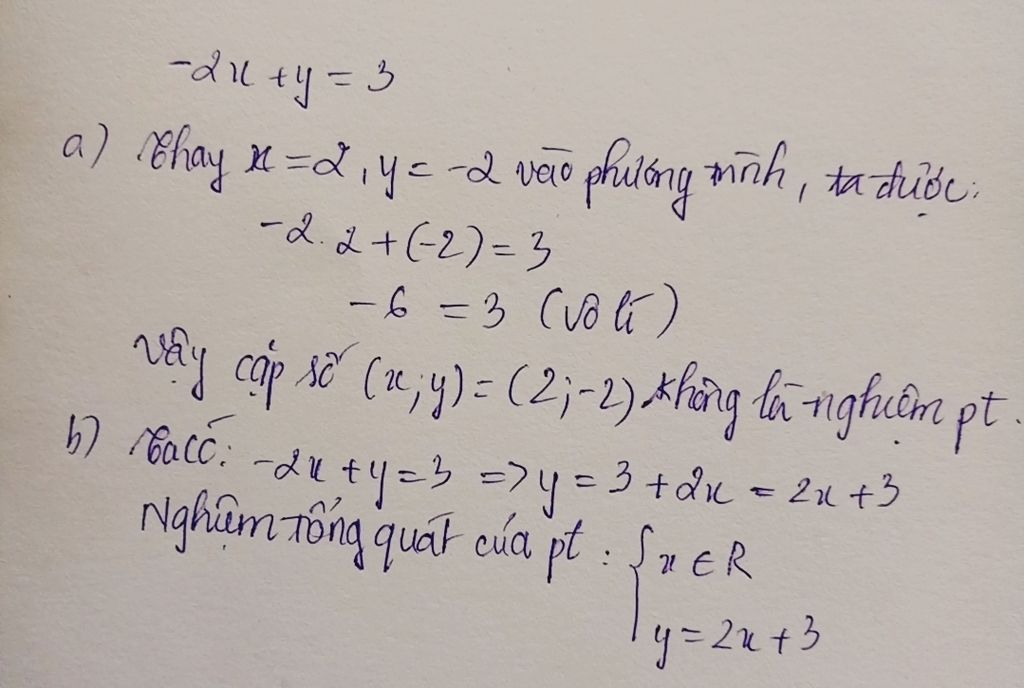 -2x + y = 3
a) Thay x = 2, y = -2 vào phương trình, ta được:
-2.2 + (-2) = 3
-6 = 3 (vô lí)
Vậy cặp số (x;y) = (2;-2) không là nghiệm pt.
b) Ta có: -2x + y = 3 => y = 3 + 2x = 2x + 3
Nghiệm tổng quát của pt: { x ∈ R
y = 2x + 3